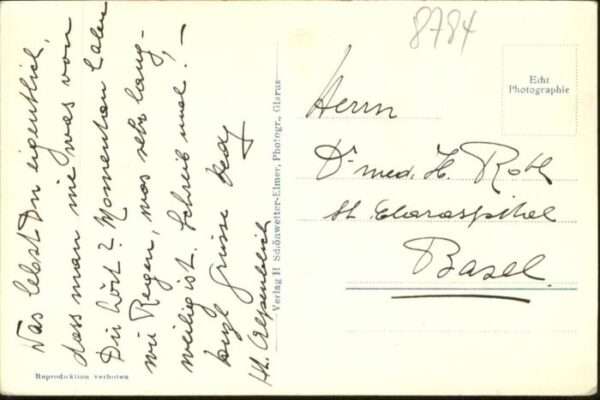 8784
Was lebst Du eigentlich,
dass man nie was von
Dir hört? Momentan haben
wir Regen, was sehr lang-
weilig ist. Schreib mal! –
Grüsse
Ht. Alpenblick
Verlag H. Schönwetter-Elmer, Photogr., Glarus
Reproduktion verboten
Echt
Photographie
Herrn
Dr med. H. Roth
St. Claraspital
Basel.